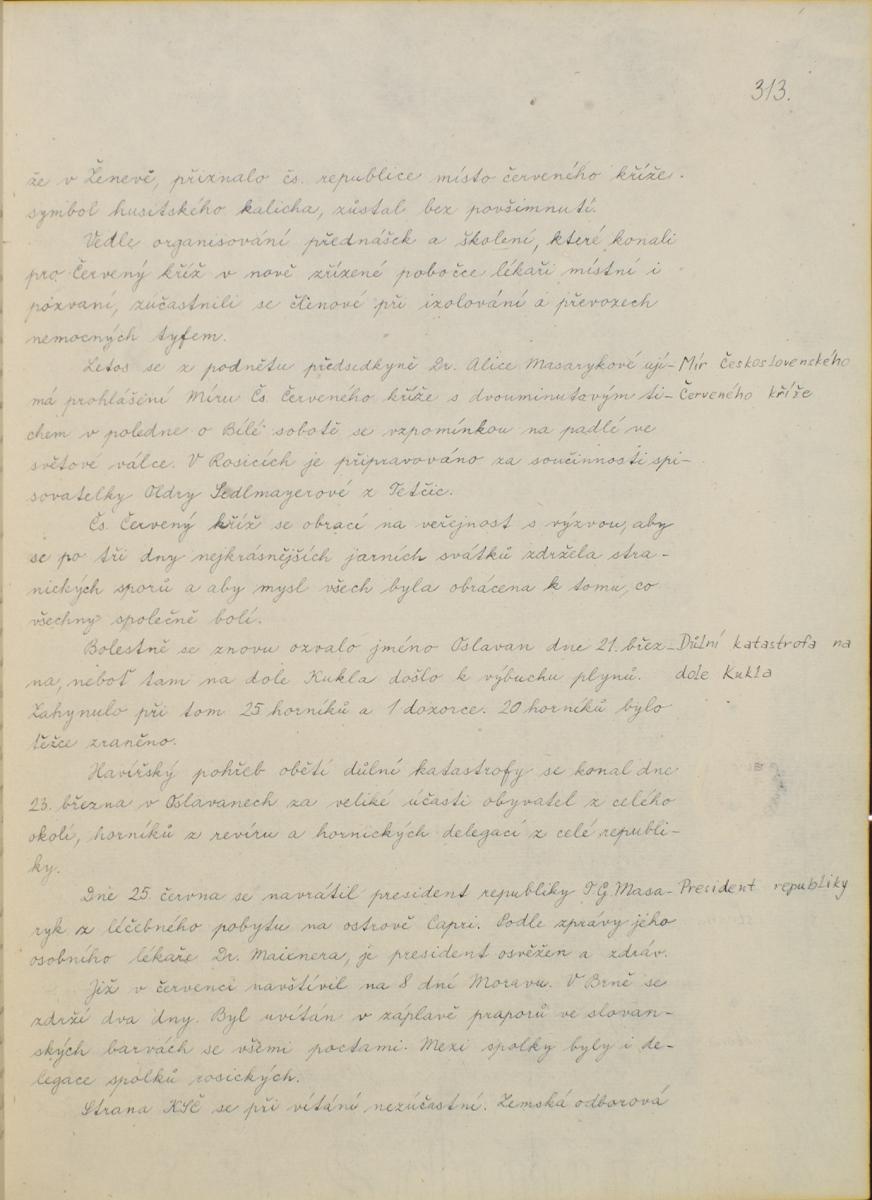 313.
že v Ženevě, přiznalo čs. republice místo červeného kříže
symbol husitského kalicha, zůstal bez povšimnutí.
Vedle organisování přednášek a školení, které konali
pro Červený kříž v nově zřízené pobočce lékaři místní i
pozvaní, zúčastnili se členové při izolování a převozech
nemocných tyfem.
Letos se z podnětu předsedkyně Dr. Alice Masarykové ují-
Mír Československého
má prohlášení Míru Čs. Červeného kříže s dvouminutovým ti-
Červeného kříže
chem v poledne o Bílé sobotě se vzpomínkou na padlé ve
světové válce. V Rosicích je připravováno za součinnosti spi-
sovatelky Oldry Sedlmayerové z Tetčic.
Čs. Červený kříž se obrací na veřejnost s výzvou, aby
se po tři dny nejkrásnějších jarních svátků zdržela stra-
nických sporů a aby mysl všech byla obrácena k tomu, co
všechny společně bolí.
Bolestně se znovu ozvalo jméno Oslavan dne 21. břez-
Důlní katastrofa na
na, neboť tam na dole Kukla došlo k výbuchu plynů.
dole Kukla
Zahynulo při tom 25 horníků a 1 dozorce. 20 horníků bylo
těžce zraněno.
Havířský pohřeb obětí důlní katastrofy se konal dne
23. března v Oslavanech za veliké účasti obyvatel z celého
okolí, horníků z revíru a hornických delegací z celé republi-
ky.
Dne 25. června se navrátil president republiky T.G. Masa-
President republiky
ryk z léčebného pobytu na ostrově Capri. Podle zprávy jeho
osobního lékaře Dr. Maixnera, je president osvěžen a zdráv.
Již v červenci navštívil na 8 dní Moravu. V Brně se
zdrží dva dny. Byl uvítán v záplavě praporů ve slovan-
ských barvách se všemi poctami. Mezi spolky byly i de-
legace spolků rosických.
Strana KSČ se při vítání nezúčastní. Zemská odborová